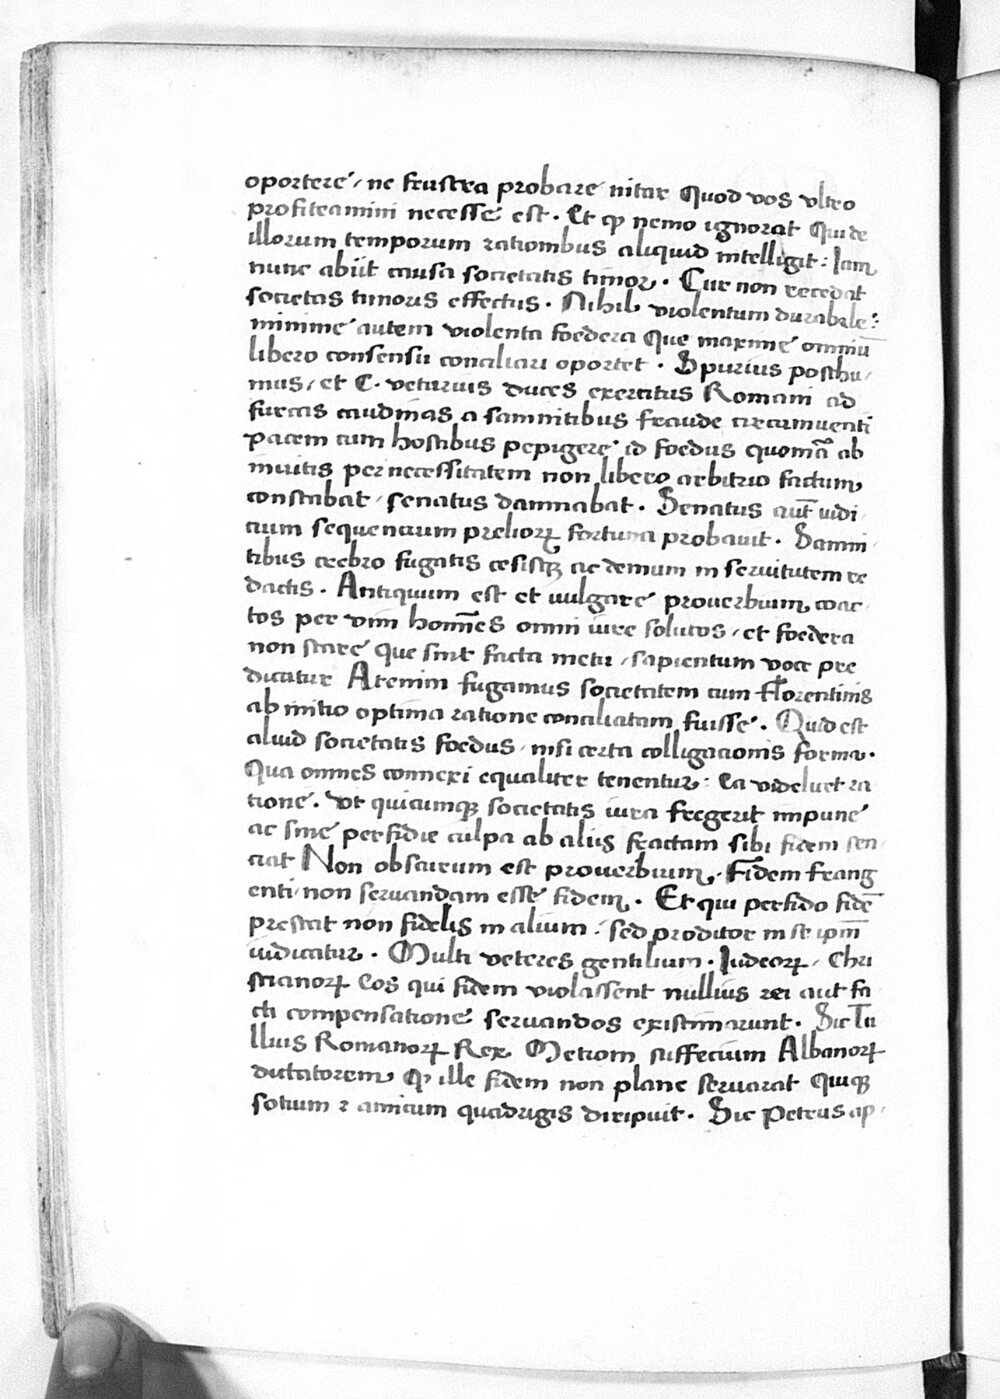 oportere / ne frustra probare nitar Quod vos vltro
profiteamini necesse est . Et ꝙ nemo ignorat Qui de
illorum temporum rationibus aliquid intelligit : Iam
nunc abiit causa societatis timor . Cur non recedat
societas timoris effectus . Nihil violentum durabile :
minime autem violenta foedera Que maxime omniū
libero consensu conciliari oportet . Spurius posthu /
mus / et C . veturius duces exercitus Romani ad
furcas caudinas a samnitibus fraude circumuenti
pacem cum hostibus pepigere id foedus quoniā ab
inuitis per necessitatem non libero arbitrio factum
constabat / senatus damnabat . Senatus aut̄ iudi /
cium sequencium prelioꝝ fortuna probauit . Samni /
tibus crebro fugatis cesisqꝫ ac demum in seruitutem re
dactis . Antiquum est et vulgare prouerbium coac /
tos per vim homīes omni iure solutos / et foedera
non stare que sint facta metu / sapientum voce pre
dicatur Atenim fugamus societatem cum florentinis
ab initio optima ratione conciliatam fuisse . Quid est
aliud societatis foedus / nisi certa colligacionis forma .
Qua omnes connexi equaliter tenentur : Ea videlicet ra
tione . Vt quicumqꝫ societatis iura fregerit impune
ac sine perfidie culpa ab aliis fractam sibi fidem sen /
ciat Non obscurum est prouerbium . Fidem frang
enti / non seruandam esse fidem . Et qui perfido fidē
prestat non fidelis in alium : sed proditor in se ipm̄
iudicatur . Multi veteres gentilium . Iudeoꝝ / Chri
stianoꝝ Eos qui fidem violassent nullius rei aut fa /
cti compensatione seruandos existimarunt . Sic Tu
llius Romanoꝝ Rex Metiom suffecium Albanoꝝ
dictatorem ꝙ ille fidem non plane seruarat Quiqꝫ
socium ⁊ amicum quadrigis diripuit . Sic Petrus ap /